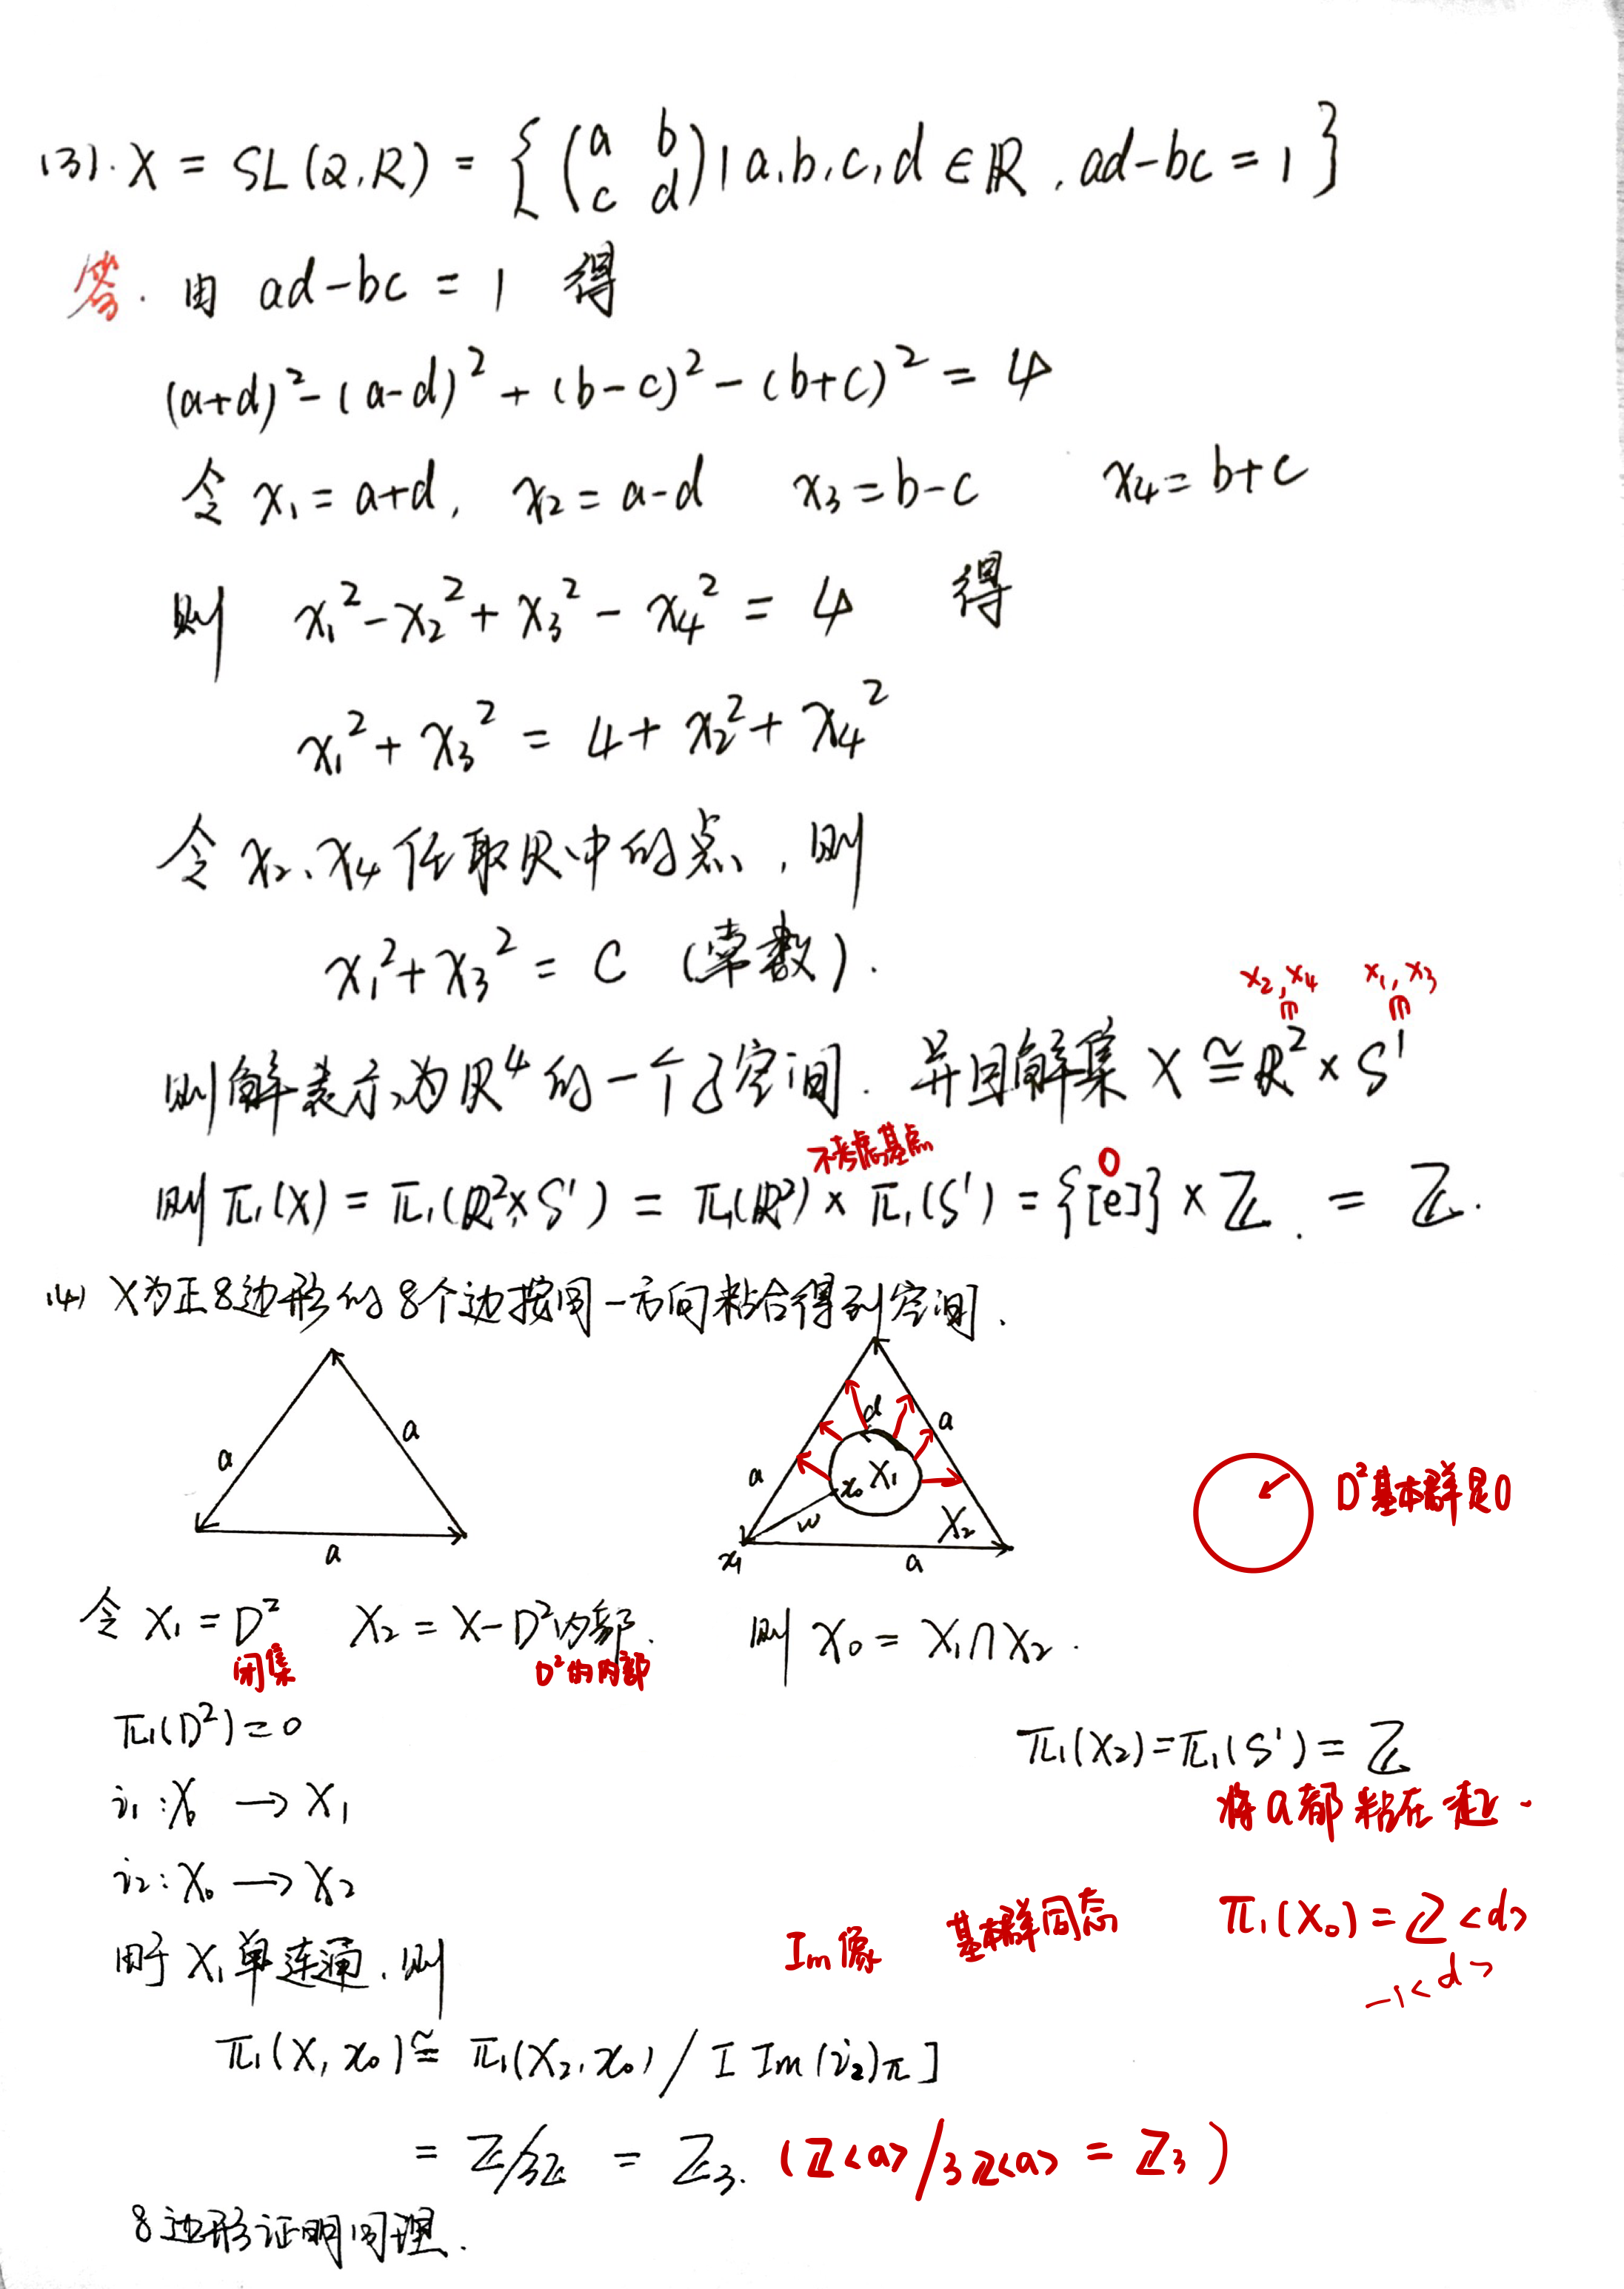 (3). X = SL(2,R) = { (a b c d) | a,b,c,d ∈ ℝ, ad-bc = 1 }
答. 由 ad-bc = 1 得
(a+d)² - (a-d)² + (b-c)² - (b+c)² = 4
令 x₁ = a+d, x₂ = a-d x₃ = b-c x₄ = b+c
则 x₁² - x₂² + x₃² - x₄² = 4 得
x₁² + x₃² = 4 + x₂² + x₄²
令 x₂、x₄ 任取 ℝ 中的点, 则
x₁² + x₃² = C (常数).
x₂, x₄ x₁, x₃
∈ ∈
则解表示为 ℝ⁴ 的一个子空间. 并且解集 X ≅ ℝ² × S¹
不考虑基点 0
则 π₁(X) = π₁(ℝ²×S¹) = π₁(ℝ²) × π₁(S¹) = {[e]} × ℤ. = ℤ.
(4) X为正8边形的8个边按同一方向粘合得到空间.
a a a
d a a X₁ x₀ w X₂ x₁ a
D²基本群是0
令 X₁ = D² X₂ = X - D²内部. 则 X₀ = X₁ ∩ X₂.
闭集 D²的内部
π₁(D²) = 0 π₁(X₂) = π₁(S¹) = ℤ
将a都粘在一起.
i₁: X₀ → X₁
i₂: X₀ → X₂
Im像 基本群同态 π₁(X₀) = ℤ<d>
-1<d>
由于 X₁ 单连通, 则
π₁(X, x₀) ≅ π₁(X₂, x₀) / [Im(i₂)π]
= ℤ/3ℤ = ℤ₃. (ℤ<a>/3ℤ<a> = ℤ₃)
8边形证明同理.